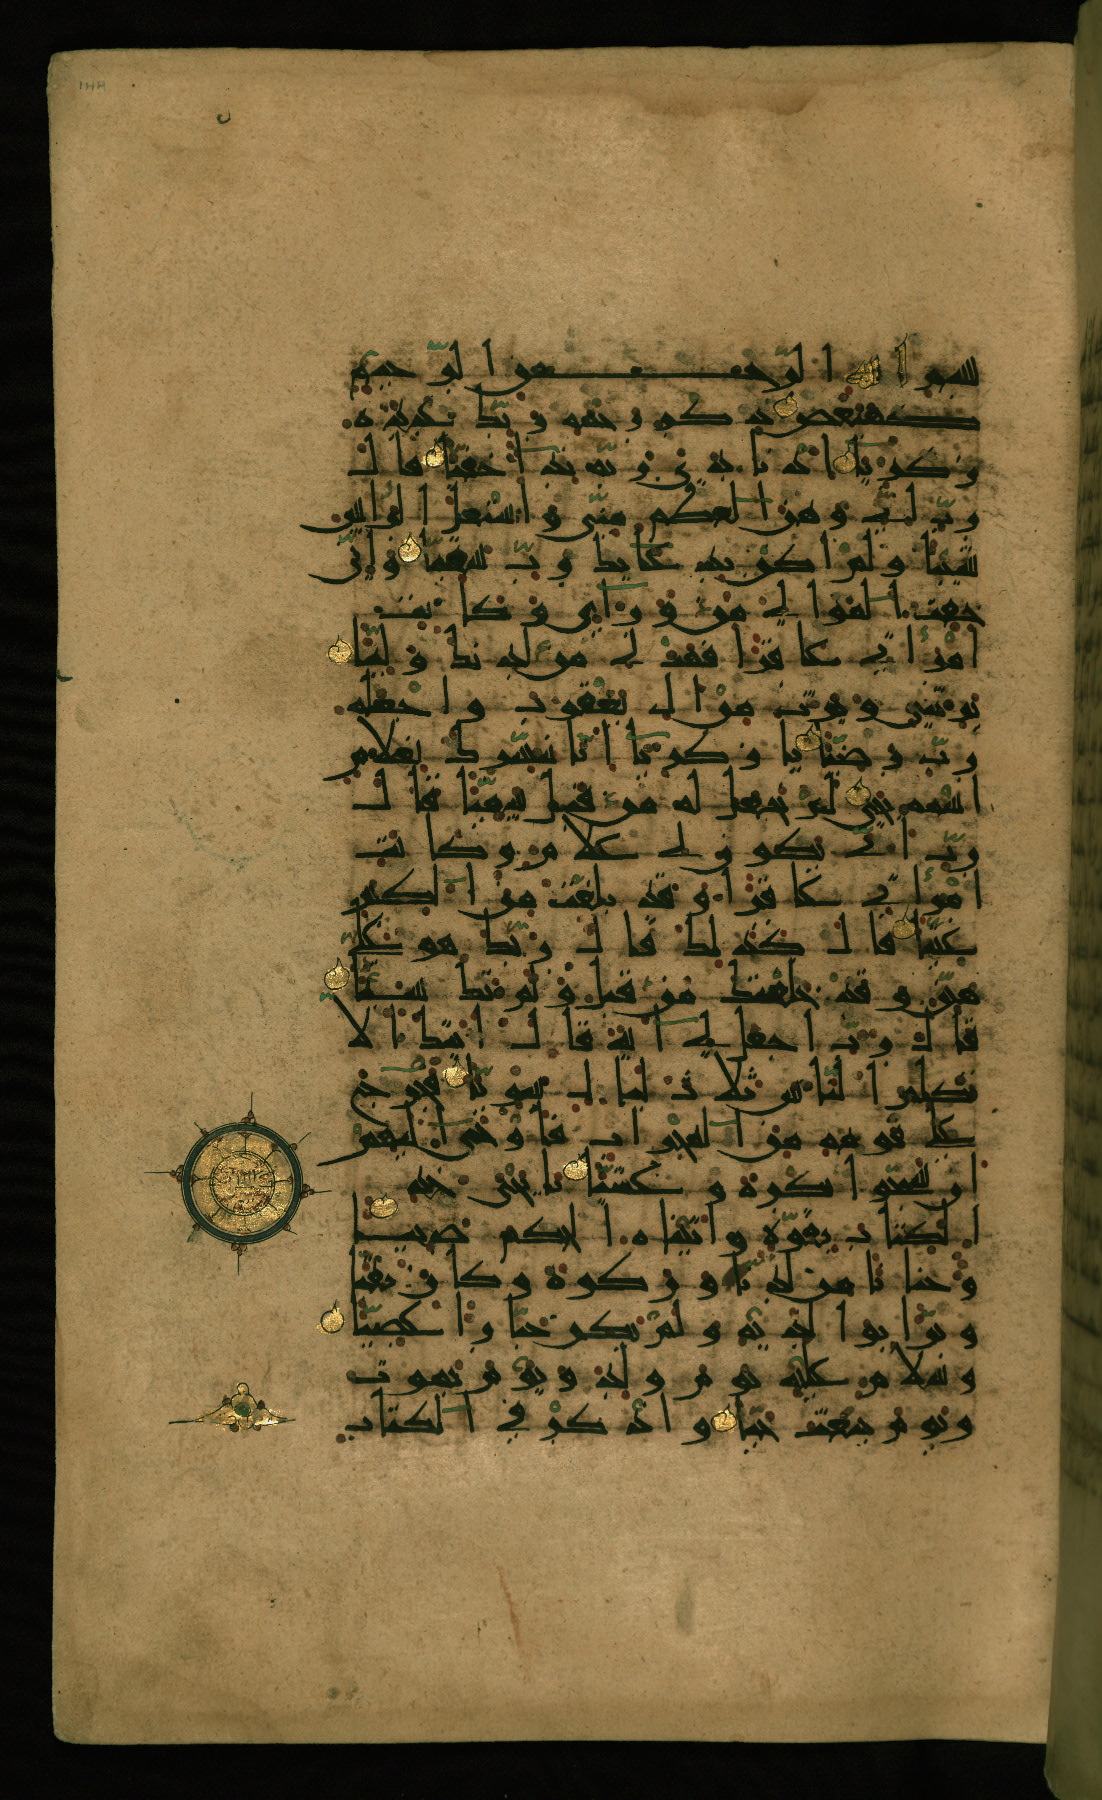 بسم الله الرحمن الرحيم
كهيعص ذكر رحمة ربك عبده
زكريا اذ نادى ربه نداء خفيا قال
رب اني وهن العظم مني واشتعل الراس
شيبا ولم اكن بدعائك رب شقيا واني
خفت الموالي من وراءي وكانت
امراتي عاقرا فهب لي من لدنك وليا
يرثني ويرث من ال يعقوب واجعله
رب رضيا يا زكريا انا نبشرك بغلام
اسمه يحيى لم نجعل له من قبل سميا قال
رب انى يكون لي غلام وكانت
امراتي عاقرا وقد بلغت من الكبر
عتيا قال كذلك قال ربك هو علي
هين وقد خلقتك من قبل ولم تك شيئا
قال رب اجعل لي اية قال ايتك الا
تكلم الناس ثلاث ليال سويا فخرج
على قومه من المحراب فاوحى اليهم
ان سبحوا بكرة وعشيا يا يحيى خذ
الكتاب بقوة واتيناه الحكم صبيا
وحنانا من لدنا وزكوة وكان تقيا
وبرا بوالديه ولم يكن جبارا عصيا
وسلام عليه يوم ولد ويوم يموت
ويوم يبعث حيا واذكر في الكتاب